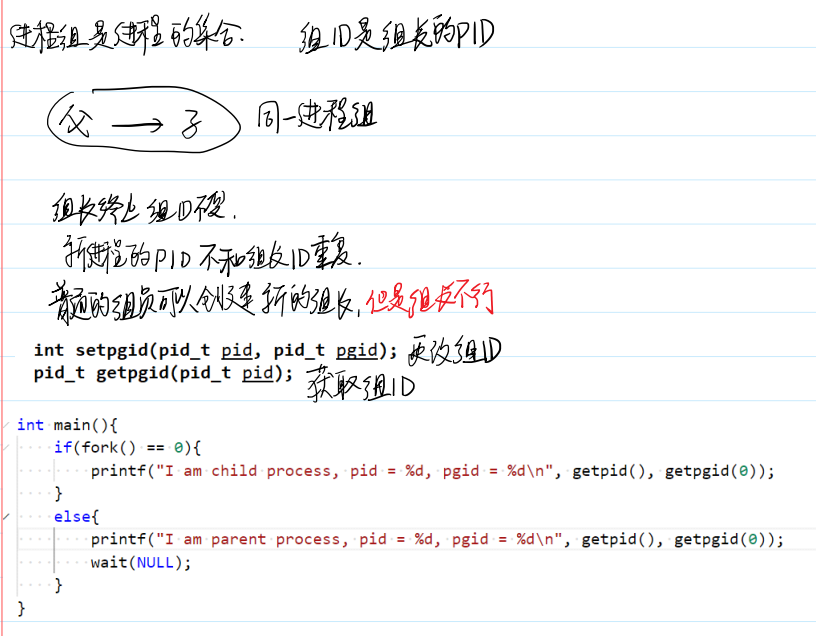 进程组是进程的集合. 组ID是组长的PID
父 → 子 同一进程组
组长终止 组ID不变.
新进程的PID 不和组长ID重复.
普通的组员可以创建新的组长, 但是组长不行
int setpgid(pid_t pid, pid_t pgid); 更改组ID
pid_t getpgid(pid_t pid); 获取组ID
int main(){
    if(fork() == 0){
        printf("I am child process, pid = %d, pgid = %d\n", getpid(), getpgid(0));
    }
    else{
        printf("I am parent process, pid = %d, pgid = %d\n", getpid(), getpgid(0));
        wait(NULL);
    }
}